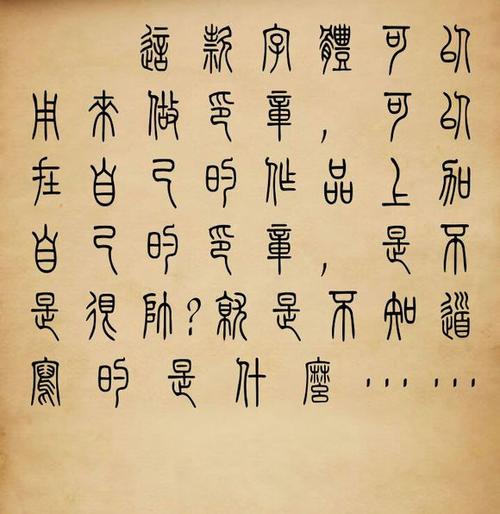 這款字體可以
用來做印章，可以
在自己的作品上加
自己的印章，是不
是很帥？就是不知道
寫的是什麼……